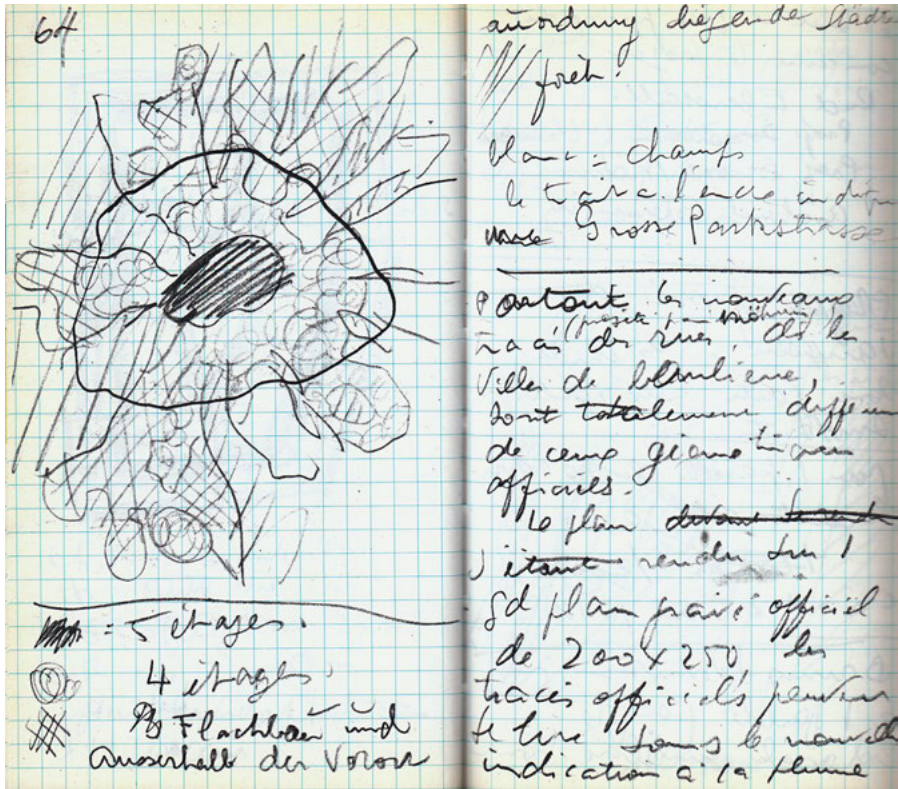 64
= 5 étages.
4 étages.
Flachbau und
Ausserhalb der Vororte
anordnung liegende Städte
forêt.
blanc = champs
le trait à l'encre indique
Grosse Parkstrasse
Partout les nouveaux
tracés des rues, ds les
villes de banlieue,
sont totalement différents
de ceux géométriques
officiels.
Le plan
étant rendu sur 1
gd plan gravé officiel
de 200 x 250, les
tracés officiels peuvent
se lire sous la nouvelle
indication à la plume